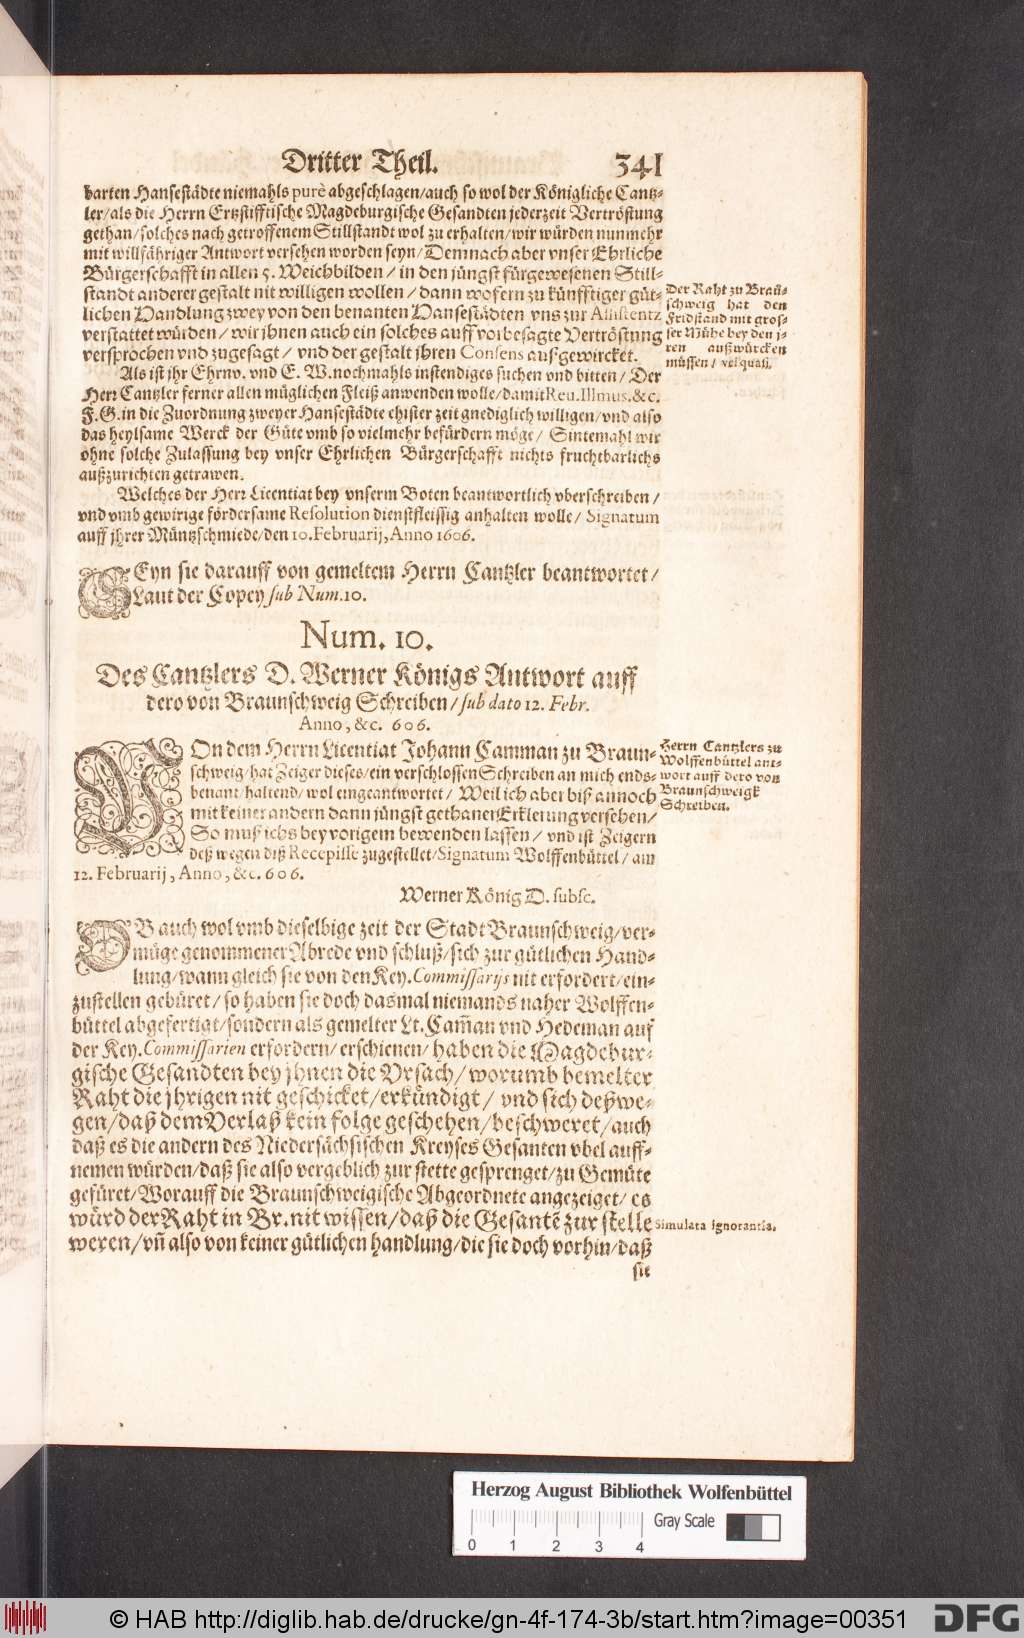 Dritter Theil. 341
barten Hansestädte niemahls purè abgeschlagen/auch so wol der Königliche Cantz-
ler/als die Herrn Ertzstifftische Magdeburgische Gesandten jederzeit Vertröstung
gethan/solches nach getroffenem Stillstandt wol zu erhalten/wir würden nunmehr
mit willfähriger Antwort versehen worden seyn/Demnach aber vnser Ehrliche
Bürgerschafft in allen 5. Weichbilden/in den jüngst fürgewesenen Still-
standt anderer gestalt nit willigen wollen/dann wofern zu künfftiger güt-
lichen Handlung zwey von den benanten Hansestädten vns zur Assistentz
verstattet würden/wir jhnen auch ein solches auff vorbesagte Vertröstung
versprochen vnd zugesagt/vnd der gestalt jhren Consens außgewircket.
Der Raht zu Brau-
schweig hat den
Fridstand mit gros-
ser Mühe bey den j-
ren außwürcken
müssen/velquasi.
Als ist jhr Ehrnv. vnd E. W. nochmahls instendiges suchen vnd bitten/Der
Herr Cantzler ferner allen müglichen Fleiß anwenden wolle/damit Reu. Illmus. &c.
F. G. in die Zuordnung zweyer Hansestädte ehister zeit gnediglich willigen/vnd also
das heylsame Werck der Güte vmb so vielmehr befürdern möge/ Sintemahl wir
öhne solche Zulassung bey vnser Ehrlichen Bürgerschafft nichts fruchtbarlichs
außzurichten getrawen.
Welches der Herr Licentiat bey vnserm Boten beantwortlich vberschreiben/
vnd vmb gewirige fördersame Resolution dienstfleissig anhalten wolle/ Signatum
auff jhrer Müntzschmiede/den 10. Februarij, Anno 1606.
SEyn sie darauff von gemeltem Herrn Cantzler beantwortet/
Laut der Copey sub Num. 10.
Num. 10.
Des Cantzlers D. Werner Königs Antwort auff
dero von Braunschweig Schreiben/sub dato 12. Febr.
Anno, &c. 606.
VOn dem Herrn Licentiat Johann Camman zu Braun-
schweig/hat Zeiger dieses/ein verschlossen Schreiben an mich ends-
benant/haltend/wol eingeantwortet/ Weil ich aber biß annoch
mit keiner andern dann jüngst gethaner Erklerung versehen/
So muß ichs bey vorigem bewenden lassen/ vnd ist Zeigern
deß wegen diß Recepisse zugestellet/Signatum Wolffenbüttel/am
12. Februarij, Anno, &c. 606.
Herrn Cantzlers zu
Wolffenbüttel ant-
wort auff dero von
Braunschweigk
Schreiben.
Werner König D. subsc.
OB auch wol vmb dieselbige zeit der Stadt Braunschweig/ver-
müge genommener Abrede vnd schluß/sich zur gütlichen Hand-
lung/wann gleich sie von den Key. Commissarijs nit erfordert/ein-
zustellen gebüret/so haben sie doch dasmal niemands naher Wolffen-
büttel abgefertigt/sondern als gemelter Lt. Cam̃an vnd Hedeman auf
der Key. Commissarien erfordern/erschienen/haben die Magdebur-
gische Gesandten bey jhnen die Vrsach/worumb bemelter
Raht die jhrigen nit geschicket/erkündigt/ vnd sich deßwe-
gen/daß dem Verlaß kein folge geschehen/beschweret/auch
daß es die andern des Niedersächsischen Kreyses Gesanten vbel auff-
nemen würden/daß sie also vergeblich zur stette gesprenget/zu Gemüte
gefüret/Worauff die Braunschweigische Abgeordnete angezeiget/es
würd der Raht in Br. nit wissen/daß die Gesantẽ zur stelle
weren/vñ also von keiner gütlichen handlung/die sie doch vorhin/daß
Simulata ignorantia.
sie
Herzog August Bibliothek Wolfenbüttel
Gray Scale
0 1 2 3 4
© HAB http://diglib.hab.de/drucke/gn-4f-174-3b/start.htm?image=00351 DFG